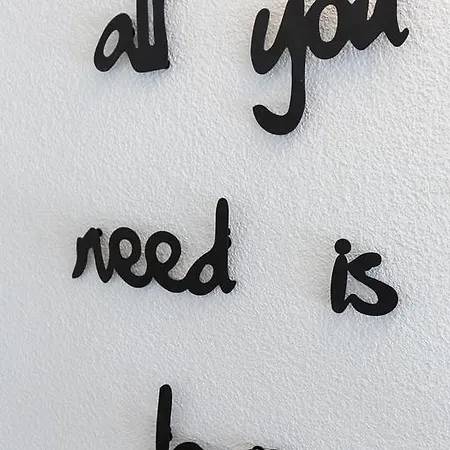 all you
need is